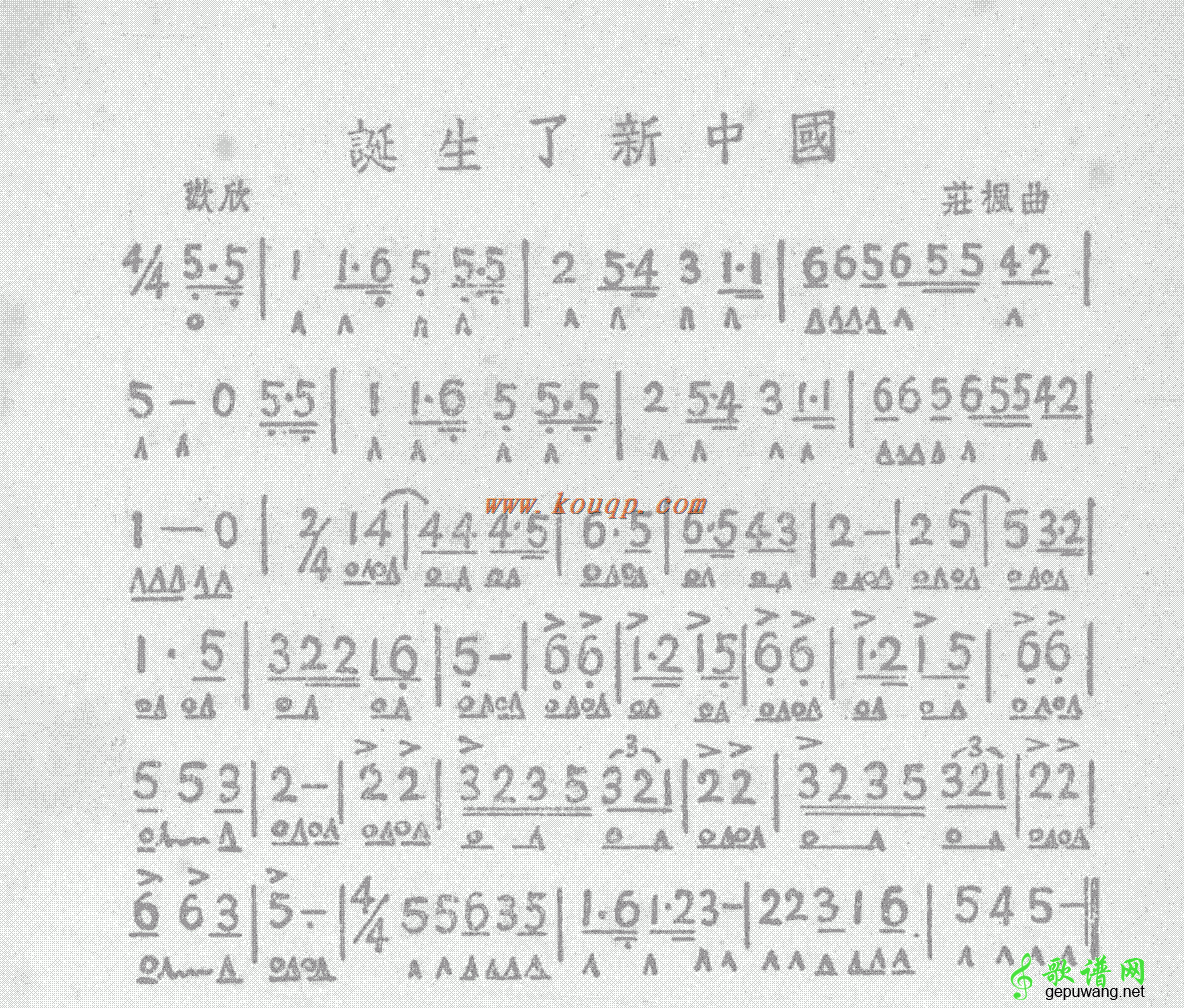 誕生了新中國
歡欣 莊楓曲
4/4 5·5 | 1 1·6 5 5·5 | 2 5·4 3 1·1 | 6 6 5 6 5 5 4 2 |
5 — 0 5·5 | 1 1·6 5 5·5 | 2 5·4 3 1·1 | 6 6 5 6 5 5 4 2 |
www.kouqp.com
1 — 0 | 2/4 1 4 | 4 4 4·5 | 6·5 | 6·5 4 3 | 2 — | 2 5 | 5 3·2 |
1·5 | 3 2 2 1 6 | 5 — | 6 6 | 1·2 1 5 | 6 6 | 1·2 1 5 | 6 6 |
5 5 3 | 2 — | 2 2 | 3 2 3 5 3 2 1 | 2 2 | 3 2 3 5 3 2 1 | 2 2 |
6 6 3 | 5 — | 4/4 5 5 6 3 5 | 1·6 1·2 3 — | 2 2 3 1 6 | 5 4 5 — ‖
歌谱网
gepuwang.net